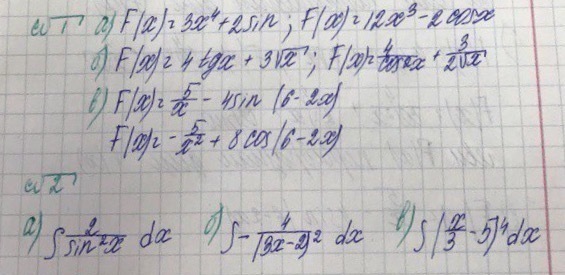 №1 а) F(x)=3x⁴+2sin; F(x)=12x³-2cosx
б) F(x)=4tgx+3√x; F(x)=4/cos²x+3/2√x
в) F(x)=5/x-4sin(6-2x)
F(x)=-5/x²+8cos(6-2x)
№2
а) ∫2/sin²x dx б) ∫-4/(3x-2)² dx в) ∫(x/3-5)⁴dx